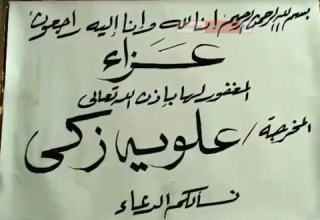 بسم الله الرحمن الرحيم إنا لله وإنا إليه راجعون
عزاء
المغفور لها بإذن الله تعالى
المخرجة / علوية زكى
نسألكم الدعاء